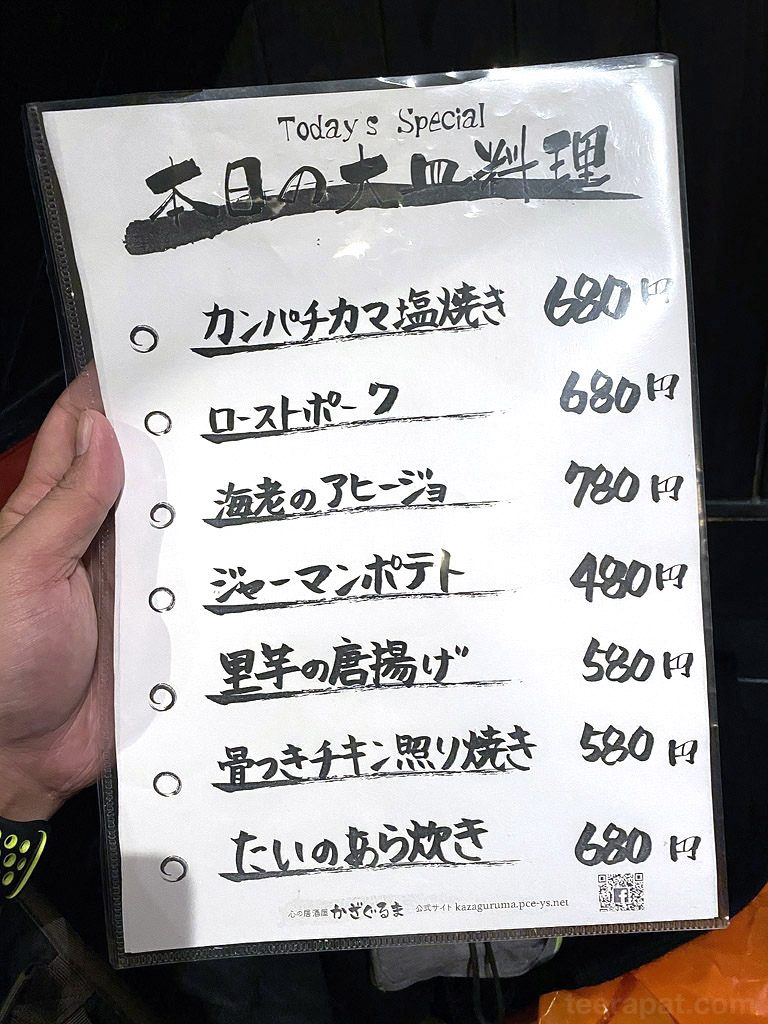 Today's Special
本日の大皿料理
カンパチカマ塩焼き 680円
ローストポーク 680円
海老のアヒージョ 780円
ジャーマンポテト 480円
里芋の唐揚げ 580円
骨つきチキン照り焼き 580円
たいのあら炊き 680円
心の居酒屋 かざぐるま 公式サイト kazaguruma.pce-ys.net
teerapat.com